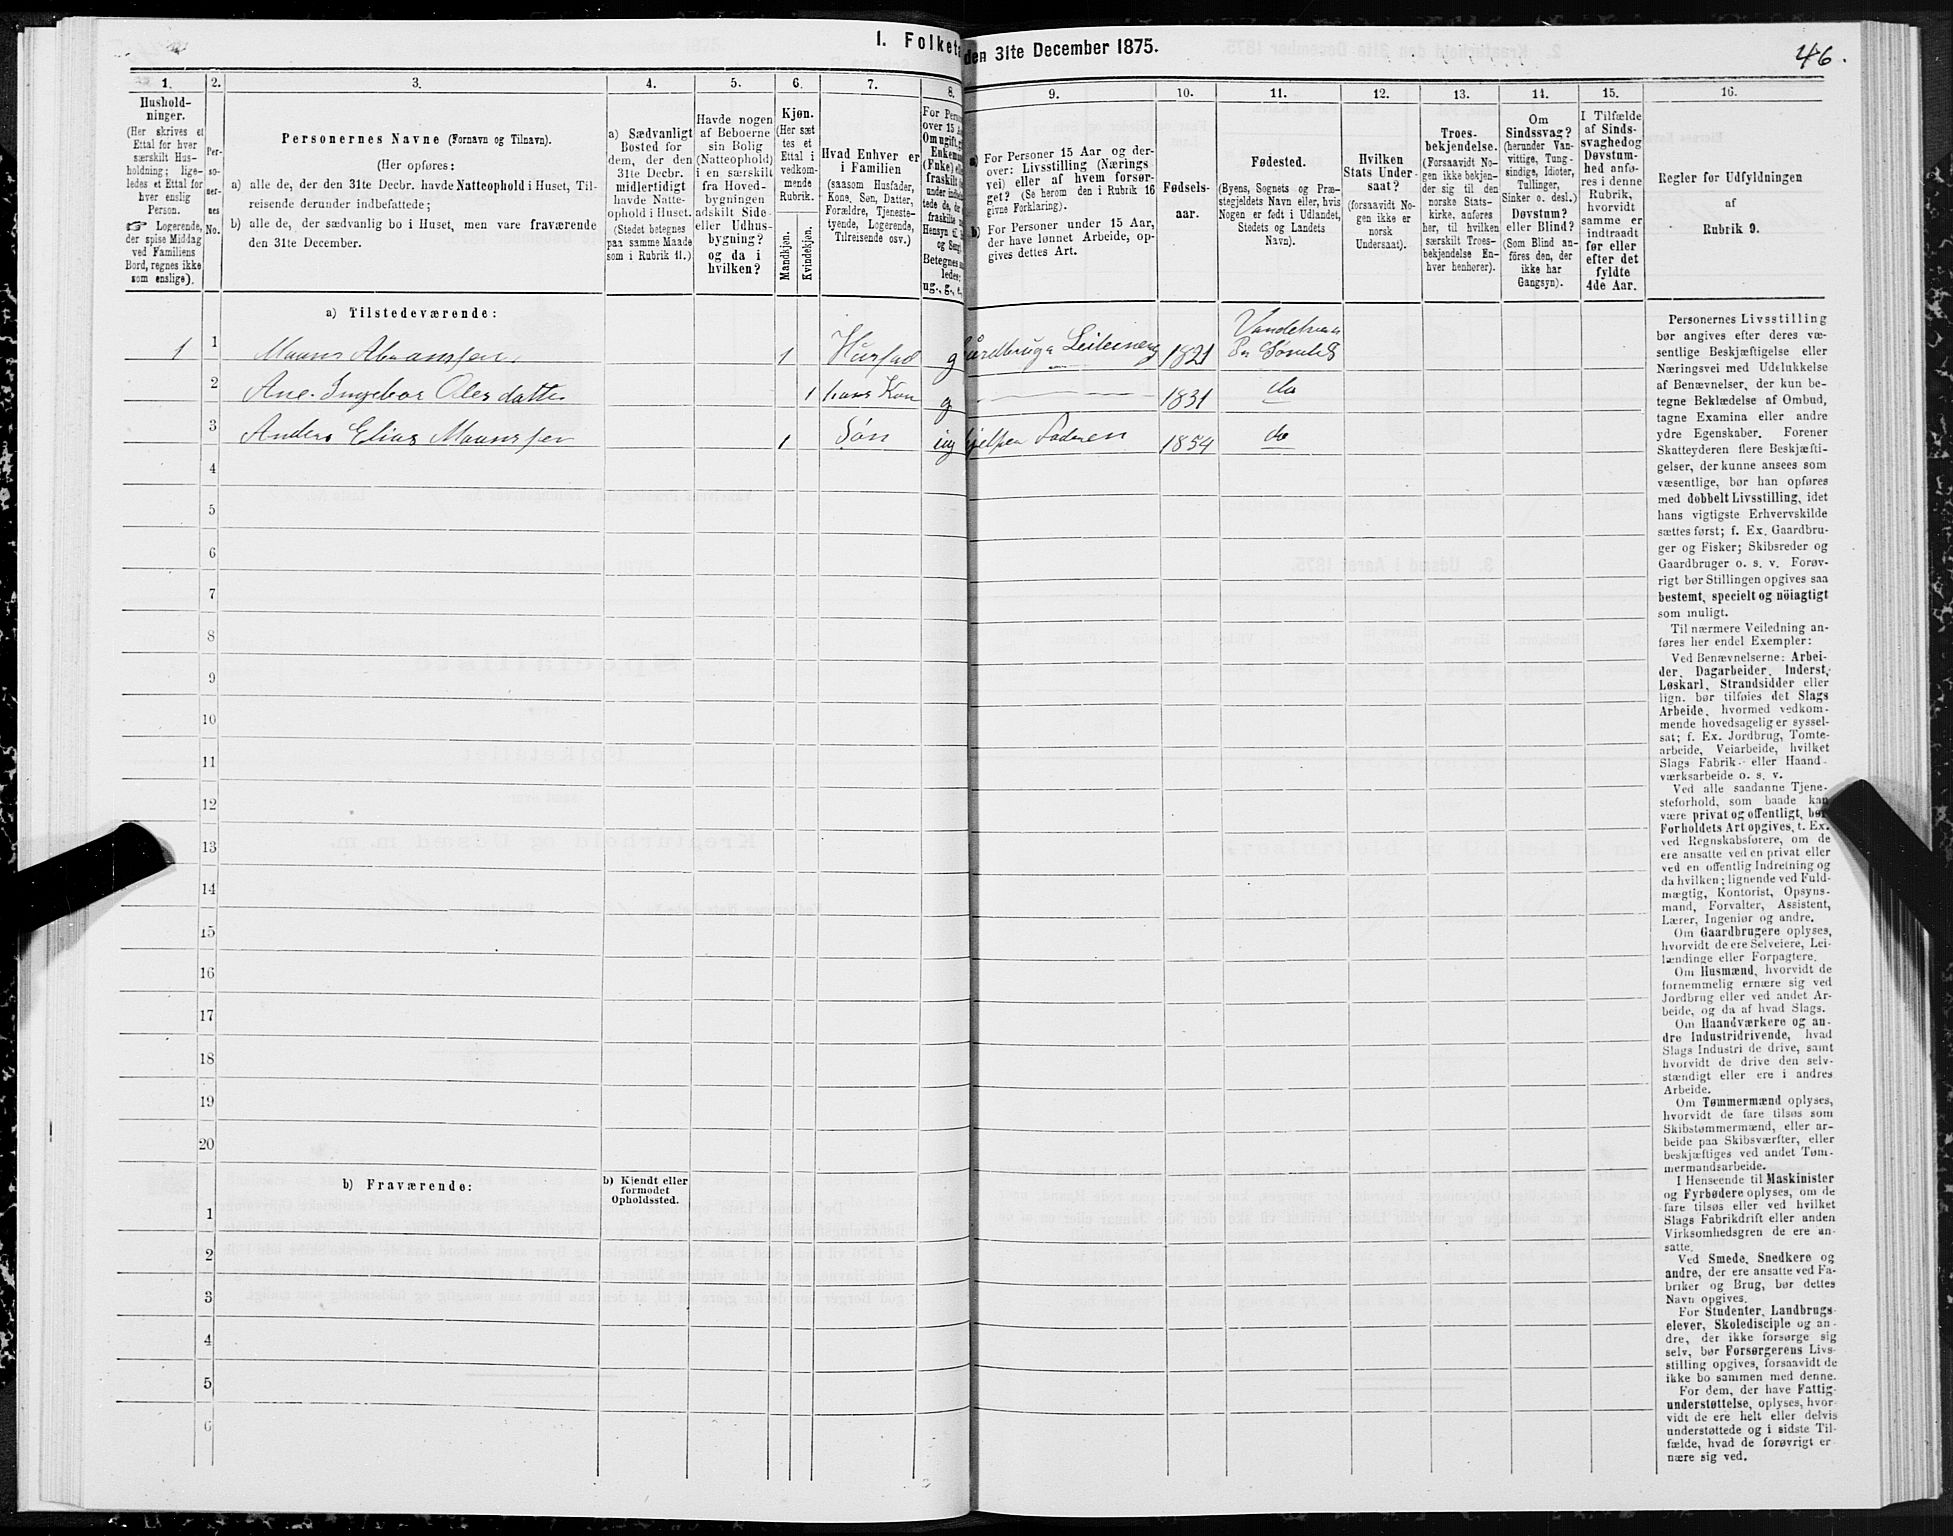 I. Folketa
den 31te December 1875.
46.
1.
2.
3.
4.
5.
6.
7.
8.
9.
10.
11.
12.
13.
14.
15.
16.
Hushold-
ninger.
(Her skrives et
Ettal for hver
særskilt Hus-
holdning; lige-
ledes et Ettal for
hver enslig
Person.
☞ Logerende,
der spise Middag
ved Familiens
Bord, regnes ikke
som enslige).
Per-
so-
ner-
nes
No.
Personernes Navne (Fornavn og Tilnavn).
(Her opføres:
a) alle de, der den 31te Decbr. havde Natteophold i Huset, Til-
reisende derunder indbefattede;
b) alle de, der sædvanlig bo i Huset, men vare fraværende
den 31te December.
a) Sædvanligt
Bosted for
dem, der den
31te Decbr.
midlertidigt
havde Natte-
ophold i Huset.
(Stedet betegnes
paa samme Maade
som i Rubrik 11.)
Havde nogen
af Beboerne
sin Bolig
(Natteophold)
i en særskilt
fra Hoved-
bygningen
adskilt Side-
eller Udhus-
bygning?
og da i
hvilken?
Kjøn.
(Her sæt-
tes et
Ettal i
vedkom-
mende
Rubrik.
Mandkjøn.
Kvindekjøn.
Hvad Enhver er
i Familien
(saasom Husfader,
Kone, Søn, Datter,
Forældre, Tjeneste-
tyende, Logerende,
Tilreisende osv.)
For Pers
over 15 Aa
Om ugift, g
Enkem
(Enke) el
fraskilt
under indbe
tede de,
fraskilte
Hensyn til
og Seng
Betegnes s
ledes:
ug., g., e.
a) For Personer 15 Aar og der-
over: Livsstilling (Nærings-
vei) eller af hvem forsør-
get? (Se herom den i Rubrik 16
givne Forklaring).
b) For Personer under 15 Aar,
der have lønnet Arbeide, op-
gives dettes Art.
Fødsels-
aar.
Fødested.
(Byens, Sognets og Præ-
stegjeldets Navn eller, hvis
Nogen er født i Udlandet,
Stedets og Landets
Navn).
Hvilken
Stats Under-
saat?
(forsaavidt No-
gen ikke er
norsk
Undersaat).
Troes-
bekjendelse.
(Forsaavidt No-
gen ikke bekjen-
der sig til den
norske Stats-
kirke, anføres
her, til hvilken
særskilt Troes-
bekjendelse En-
hver henhører).
Om
Sindssvag?
(herunder Van-
vittige, Tung-
sindige, Idioter,
Tullinger,
Sinker o. desl.)
Døvstum?
eller Blind?
(Som Blind an-
føres den, der
ikke har
Gangsyn).
I Tilfælde
af Sinds-
svaghed og
Døvstum-
hed anfø-
res i denne
Rubrik,
hvorvidt
samme er
indtraadt
før eller
efter det
fyldte
4de Aar.
Regler for Udfyldningen
af
Rubrik 9.
a) Tilstedeværende:
1 1 1 Husfad g 1821
2 Ane Ingebor Olesdatter 1 hans Kon g 1831 do
3 Anders Elias 1 Søn ug 1854 do
4
5
6
7
8
9
10
11
12
13
14
15
16
17
18
19
20
b) Fraværende:
b) Kjendt eller
formodet
Opholdssted.
1
2
3
4
5
6
Personernes Livsstilling
bør angives efter deres væ-
sentlige Beskjæftigelse eller
Næringsvei med Udelukkelse
af Benævnelser, der kun be-
tegne Beklædelse af Ombud,
tagne Examina eller andre
ydre Egenskaber. Forener
Skatteyderen flere Beskjæfti-
gelser, der kunne ansees som
væsentlige, bør han opføres
med dobbelt Livsstilling, idet
hans vigtigste Erhvervskilde
sættes først; f. Ex. Gaardbru-
ger og Fisker; Skibsreder og
Gaardbruger o. s. v. Forøv-
rigt bør Stillingen opgives saa
bestemt, specielt og nöiagtigt
som muligt.
Til nærmere Veiledning an-
føres her endel Exempler:
Ved Benævnelserne: Arbei-
der, Dagarbeider, Inderst,
Løskarl, Strandsidder eller
lign. bør tilføies det Slags
Arbeide, hvormed vedkom-
mende hovedsagelig er syssel-
sat; f. Ex. Jordbrug, Tomte-
arbeide, Veiarbeide, hvilket
Slags Fabrik- eller Haand-
værksarbeide o. s. v.
Ved alle saadanne Tjene-
steforhold, som baade kan
være privat og offentligt, bør
Forholdets Art opgives, t. Ex.
ved Regnskabsførere, om de
ere ansatte ved en privat eller
ved en offentlig Indretning og
da hvilken; lignende ved Fuld-
mægtig, Kontorist, Opsyns-
mand, Forvalter, Assistent,
Lærer, Ingeniør og andre.
Om Gaardbrugere oplyses,
hvorvidt de ere Selveiere, Lei-
lændinge eller Forpagtere.
Om Husmænd, hvorvidt de
fornemmelig ernære sig ved
Jordbrug eller ved andet Ar-
beide, og da af hvad Slags.
Om Haandværkere og an-
dre Industridrivende, hvad
Slags Industri de drive, samt
hvorvidt de drive den selv-
stændigt eller ere i andres
Arbeide.
Om Tømmermænd oplyses,
hvorvidt de fare tilsøs som
Skibstømmermænd, eller ar-
beide paa Skibsværfter, eller
beskjæftiges ved andet Tøm-
mermandsarbeide.
I Henseende til Maskinister
og Fyrbødere oplyses, om de
fare tilsøs eller ved hvilket
Slags Fabrikdrift eller anden
Virksomhedsgren de ere an-
satte.
Ved Smede, Snedkere og
andre, der ere ansatte ved Fa-
briker og Brug, bør dettes
Navn opgives.
For Studenter, Landbrugs-
elever, Skoledisciple og an-
dre, der ikke forsørge sig
selv, bør Forsørgerens Livs-
stilling opgives, forsaavidt de
ikke bo sammen med denne.
For dem, der have Fattig-
understøttelse, oplyses, hvor-
vidt de ere helt eller delvis
understøttede og i sidste Til-
fælde, hvad de forøvrigt er-
nære sig ved.